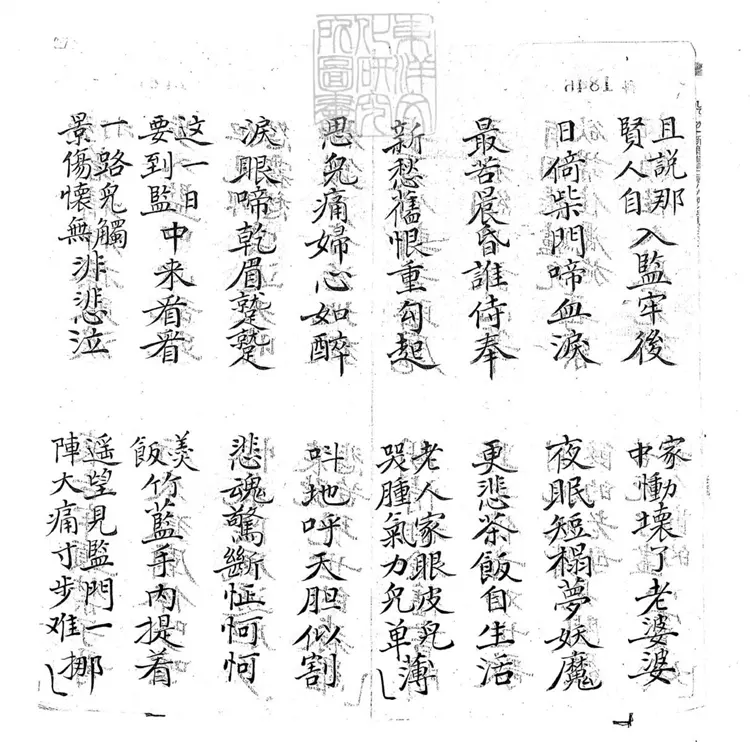 且說那賢人自入監牢後
家中慟壞了老婆婆
日倚柴門啼血淚
夜眠短榻夢妖魔
最苦晨昏誰侍奉
更悲茶飯自生活
新愁舊恨重勾起
老人家眼皮兒哭腫氣力兒单薄
思兒痛婦心如醉
呌地呼天胆似割
淚眼啼乾眉蹙蹙
悲魂驚斷怔㤎㤎
这一日要到監中来看看
羮飯竹藍手內提着
一路兒觸景傷懷無非悲泣
遥望見監門一陣大痛寸步难挪
東洋文化研究所圖書